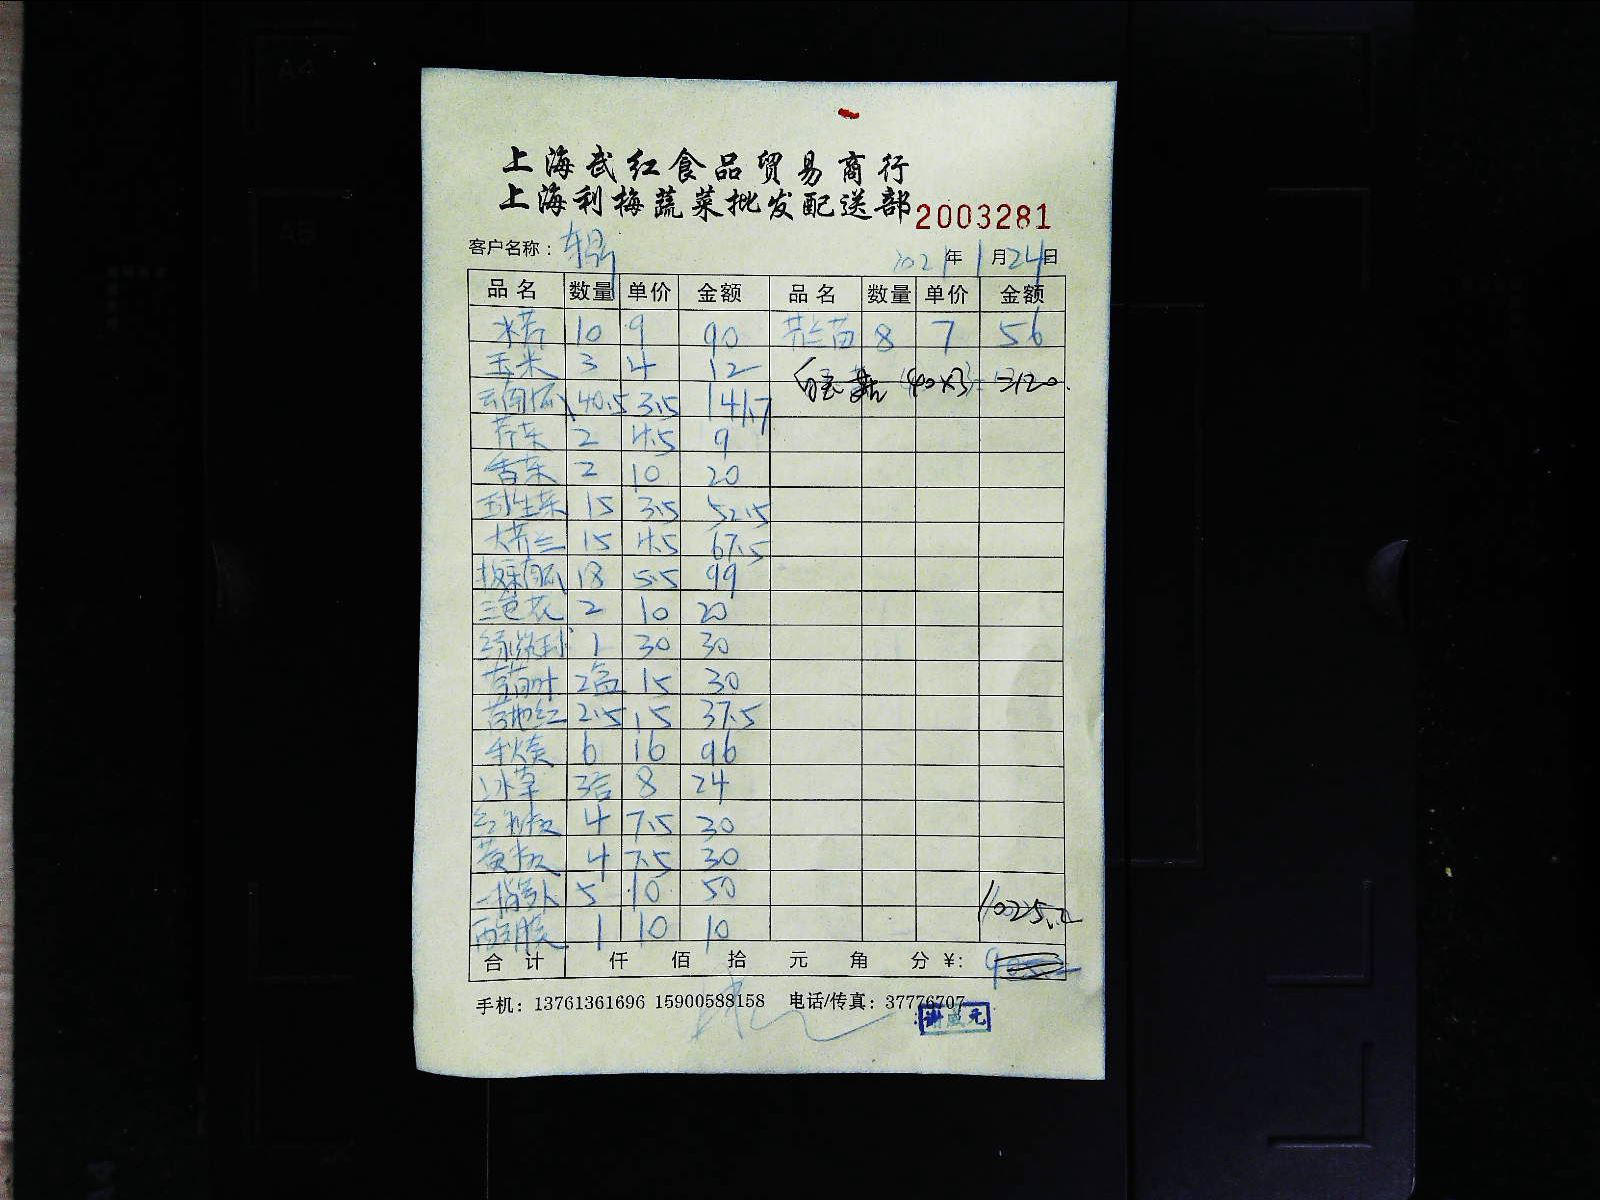 上海武红食品贸易商行
上海利梅蔬菜批发配送部 2003281
客户名称： 2021年1月24日
品名 数量 单价 金额 品名 数量 单价 金额
水芹 10 9 90 芥兰苗 8 7 56
玉米 3 4 12
白玉菇 (40×3) 120
云南瓜 40.5 3.5 141.7
芹菜 2 4.5 9
香菜 2 10 20
球生菜 15 3.5 52.5
大芥兰 15 4.5 67.5
板栗南瓜 18 5.5 99
三色花 2 10 20
1 30 30
2盒 15 30
2.5 15 37.5
6 16 96
冰草 3合 8 24
红彩椒 4 7.5 30
黄椒 4 7.5 30
5 10 50
1 10 10
1025.2
合计 仟 佰 拾 元 角 分 ¥:
手机：13761361696 15900588158 电话/传真：37776707
谢成元